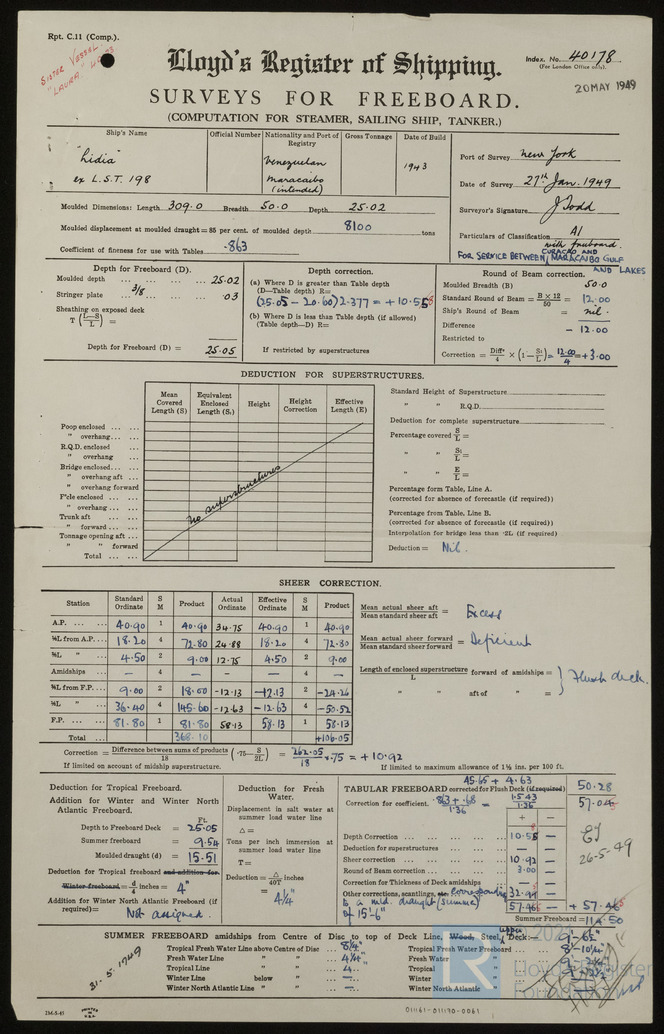 Rpt. C.11 (Comp.).
SISTER VESSEL
"LAURA"
Lloyd's Register of Shipping.
Index. No. 40178
(For London Office only).
20 MAY 1949
SURVEYS FOR FREEBOARD.
(COMPUTATION FOR STEAMER, SAILING SHIP, TANKER.)
Ship's Name
Official Number
Nationality and Port of Registry
Gross Tonnage
Date of Build
"Lidia"
ex L.S.T. 198
Venezuelan
Maracaibo
(intended)
1943
Port of Survey New York
Date of Survey 27th Jan. 1949
Surveyor's Signature J Todd
Particulars of Classification A1
with freeboard.
FOR SERVICE BETWEEN CURACAO AND MARACAIBO GULF AND LAKES
Moulded Dimensions: Length 309.0 Breadth 50.0 Depth 25.02
Moulded displacement at moulded draught = 85 per cent. of moulded depth 8100 tons
Coefficient of fineness for use with Tables .863
Depth for Freeboard (D).
Moulded depth ... ... ... 25.02
Stringer plate 3/8 ... ... .03
Sheathing on exposed deck
T (L—S / L) =
Depth for Freeboard (D) = 25.05
Depth correction.
(a) Where D is greater than Table depth
(D—Table depth) R=
(25.05 - 20.60) 2.377 = + 10.58
(b) Where D is less than Table depth (if allowed)
(Table depth—D) R=
If restricted by superstructures
Round of Beam correction.
Moulded Breadth (B) 50.0
Standard Round of Beam = B × 12 / 50 = 12.00
Ship's Round of Beam = nil.
Difference - 12.00
Restricted to
Correction = Diffce / 4 × (1 − S1 / L) = 12.00 / 4 = +3.00
DEDUCTION FOR SUPERSTRUCTURES.
Mean Covered Length (S)
Equivalent Enclosed Length (S1)
Height
Height Correction
Effective Length (E)
Poop enclosed ... ...
" overhang... ...
R.Q.D. enclosed ...
" overhang
Bridge enclosed... ...
" overhang aft ...
" overhang forward
F'cle enclosed ... ...
" overhang ... ...
Trunk aft ... ...
" forward ... ...
Tonnage opening aft ...
" " forward
Total ... ...
No superstructures
Standard Height of Superstructure
" " R.Q.D.
Deduction for complete superstructure
Percentage covered S / L =
" " S1 / L =
" " E / L =
Percentage from Table, Line A.
(corrected for absence of forecastle (if required))
Percentage from Table, Line B.
(corrected for absence of forecastle (if required))
Interpolation for bridge less than ·2L (if required)
Deduction = Nil.
SHEER CORRECTION.
Station | Standard Ordinate | S M | Product | Actual Ordinate | Effective Ordinate | S M | Product
A.P. ... ... 40.90 1 40.90 34.75 40.90 1 40.90
⅙L from A.P.... 18.20 4 72.80 24.88 18.20 4 72.80
⅓L " 4.50 2 9.00 12.75 4.50 2 9.00
Amidships ... — 4 — — — 4 —
⅓L from F.P.... 9.00 2 18.00 -12.13 -12.13 2 -24.26
⅙L " 36.40 4 145.60 -12.63 -12.63 4 -50.52
F.P. ... ... 81.80 1 81.80 58.13 58.13 1 58.13
Total ... 368.10 +106.05
Mean actual sheer aft / Mean standard sheer aft = Excess
Mean actual sheer forward / Mean standard sheer forward = Deficient
Length of enclosed superstructure / L forward of amidships =
" " aft of " =
Flush deck.
Correction = Difference between sums of products / 18 (·75 − S / 2L) = 262.05 / 18 × .75 = + 10.92
If limited on account of midship superstructure.
If limited to maximum allowance of 1½ ins. per 100 ft.
Deduction for Tropical Freeboard.
Addition for Winter and Winter North Atlantic Freeboard.
Ft.
Depth to Freeboard Deck = 25.05
Summer freeboard = 9.54
Moulded draught (d) = 15.51
Deduction for Tropical freeboard and addition for Winter freeboard = d / 4 inches = 4"
Addition for Winter North Atlantic Freeboard (if required) = Not assigned.
Deduction for Fresh Water.
Displacement in salt water at summer load water line
Δ =
Tons per inch immersion at summer load water line
T =
Deduction = Δ / 40T inches
= 4¼"
45.65 + 4.63
TABULAR FREEBOARD corrected for Flush Deck (if required) 50.28
Correction for coefficient. .863 + .68 / 1.36 = 1.543 / 1.36 57.04
+ —
Depth Correction ... ... ... 10.58 —
Deduction for superstructures ... ... — —
Sheer correction ... ... ... 10.92 —
Round of Beam correction ... ... 3.00 —
Correction for Thickness of Deck amidships — —
Other corrections, scantlings, etc. corresponding
to a mld. draught (summer)
of 15'-6"
+ 57.46
Summer Freeboard = 114.50
26-5-49
SUMMER FREEBOARD amidships from Centre of Disc to top of Deck Line, Wood, Steel, upper Deck:—
Tropical Fresh Water Line above Centre of Disc ... 8¼"
Fresh Water Line " " ... 4¼"
Tropical Line " " ... 4
Winter Line below " ... —
Winter North Atlantic Line " " ... —
Tropical Fresh Water Freeboard
Fresh Water "
Tropical "
Winter "
Winter North Atlantic "
31-5-1949
2M-5-47
PRINTED IN U.S.A.
01161-01170-0061
Lloyd's Register
Foundation